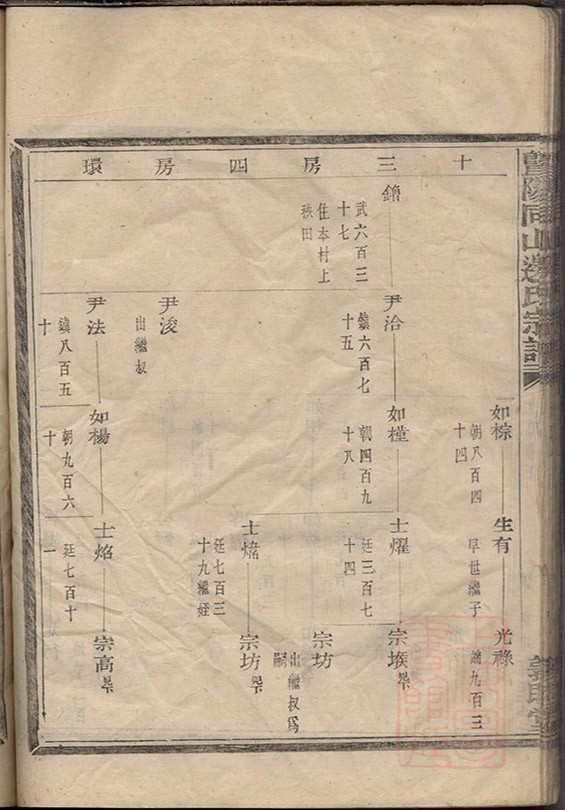 暨陽同山邊氏宗譜
十三房四房環
如棕
朝八百四
十四
生有
早世繼子
光祿
瑞九百三
鐕
武六百三
十七
住本村上
秧田
尹治
鎮六百七
十五
如槿
朝四百九
十八
士燿
廷三百七
十四
宗堠
宗坊
出繼叔為
嗣
士煒
廷七百三
十九繼姪
宗坊
尹浚
出繼叔
尹法
鎮八百五
十
如楊
朝九百六
十
士焰
廷七百十
一
宗高